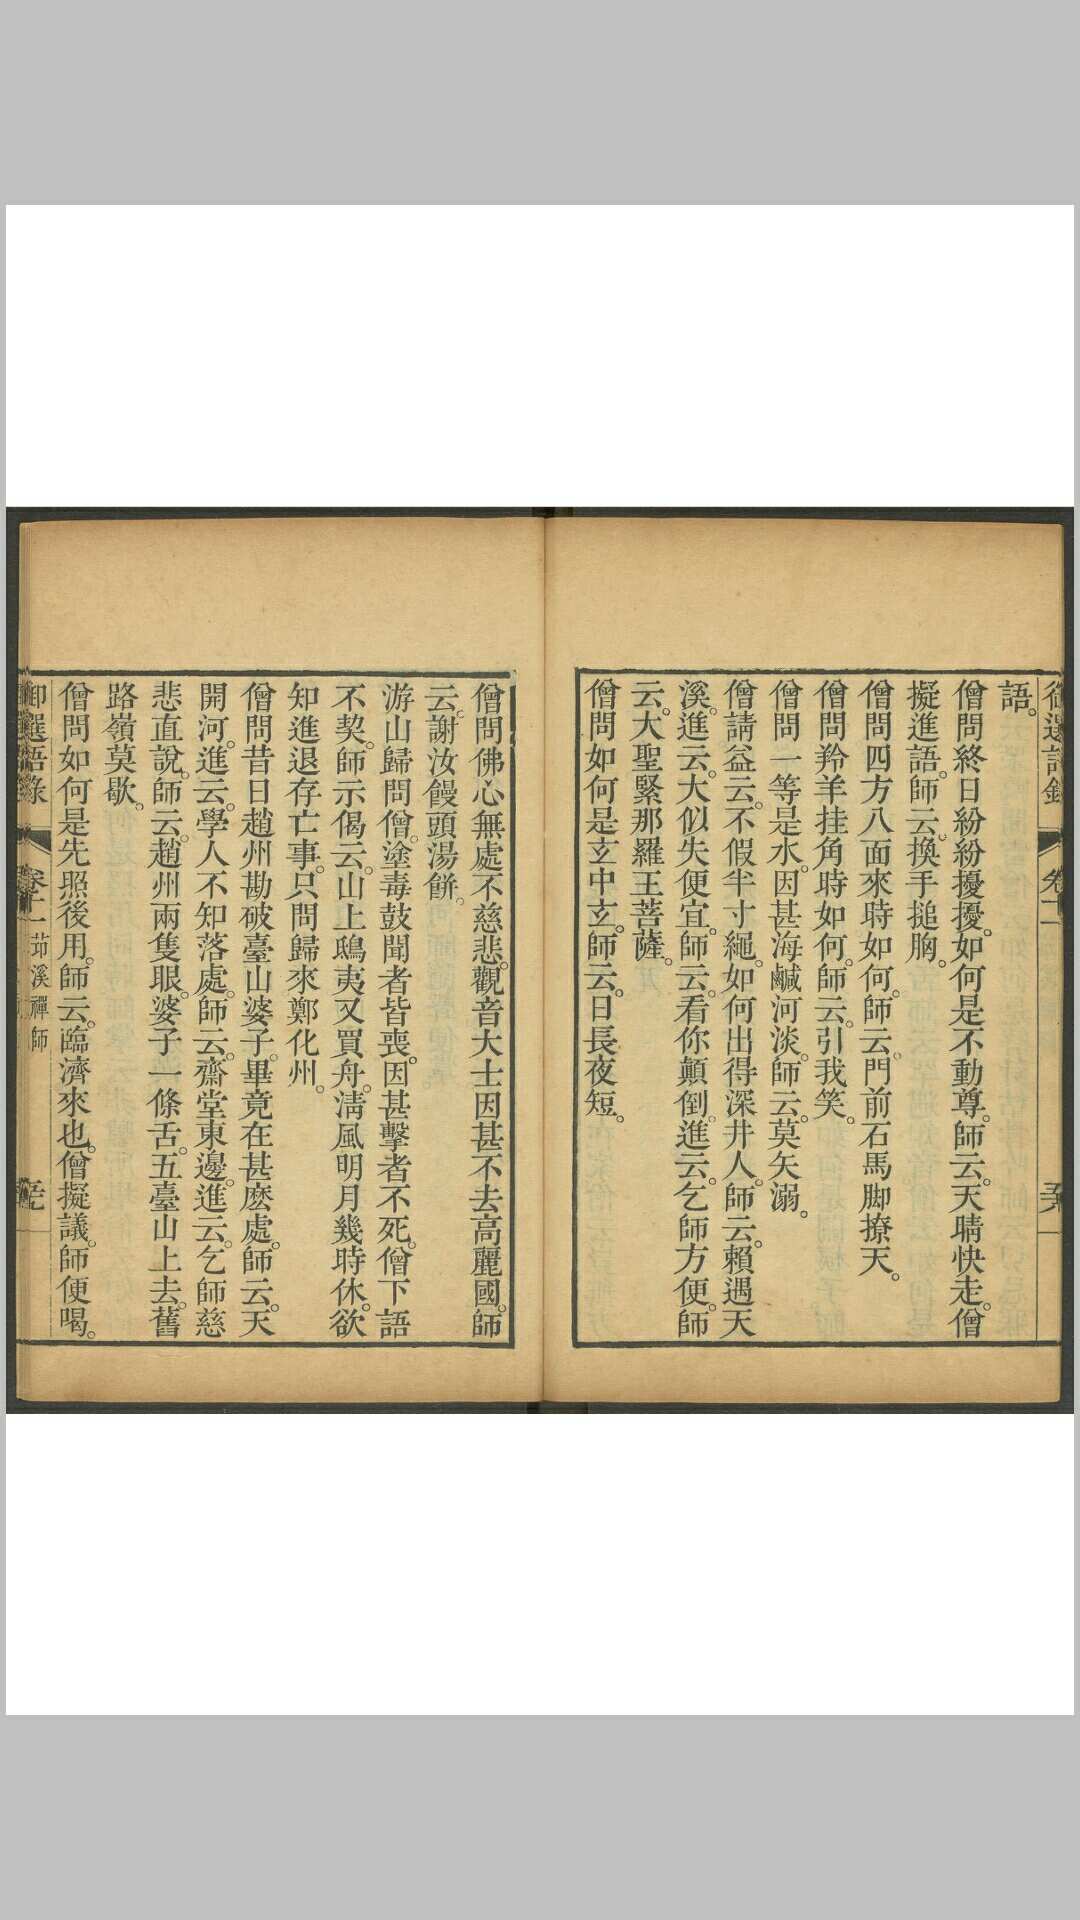 御選語錄 卷十一 至
語。
僧問終日紛紛擾擾。如何是不動尊。師云。天晴快走。僧
擬進語。師云。換手搥胸。
僧問四方八面來時如何。師云。門前石馬脚撩天。
僧問羚羊挂角時如何。師云。引我笑。
僧問一等是水。因甚海鹹河淡。師云。莫矢溺。
僧請益云。不假半寸繩。如何出得深井人。師云。賴遇天
溪。進云。大似失便宜。師云。看你顛倒。進云。乞師方便。師
云。大聖緊那羅王菩薩。
僧問如何是玄中玄。師云。日長夜短。
僧問佛心無處不慈悲。觀音大士因甚不去高麗國。師
云。謝汝饅頭湯餅。
游山歸問僧。塗毒鼓聞者皆喪。因甚擊者不死。僧下語
不契。師示偈云。山上鴟夷又買舟。淸風明月幾時休。欲
知進退存亡事。只問歸來鄭化州。
僧問昔日趙州勘破臺山婆子。畢竟在甚麽處。師云。天
開河。進云。學人不知落處。師云。齋堂東邊。進云。乞師慈
悲直說。師云。趙州兩隻眼。婆子一條舌。五臺山上去。舊
路嶺莫歇。
僧問如何是先照後用。師云。臨濟來也。僧擬議。師便喝。
御選語錄 卷十一 茆溪禪師